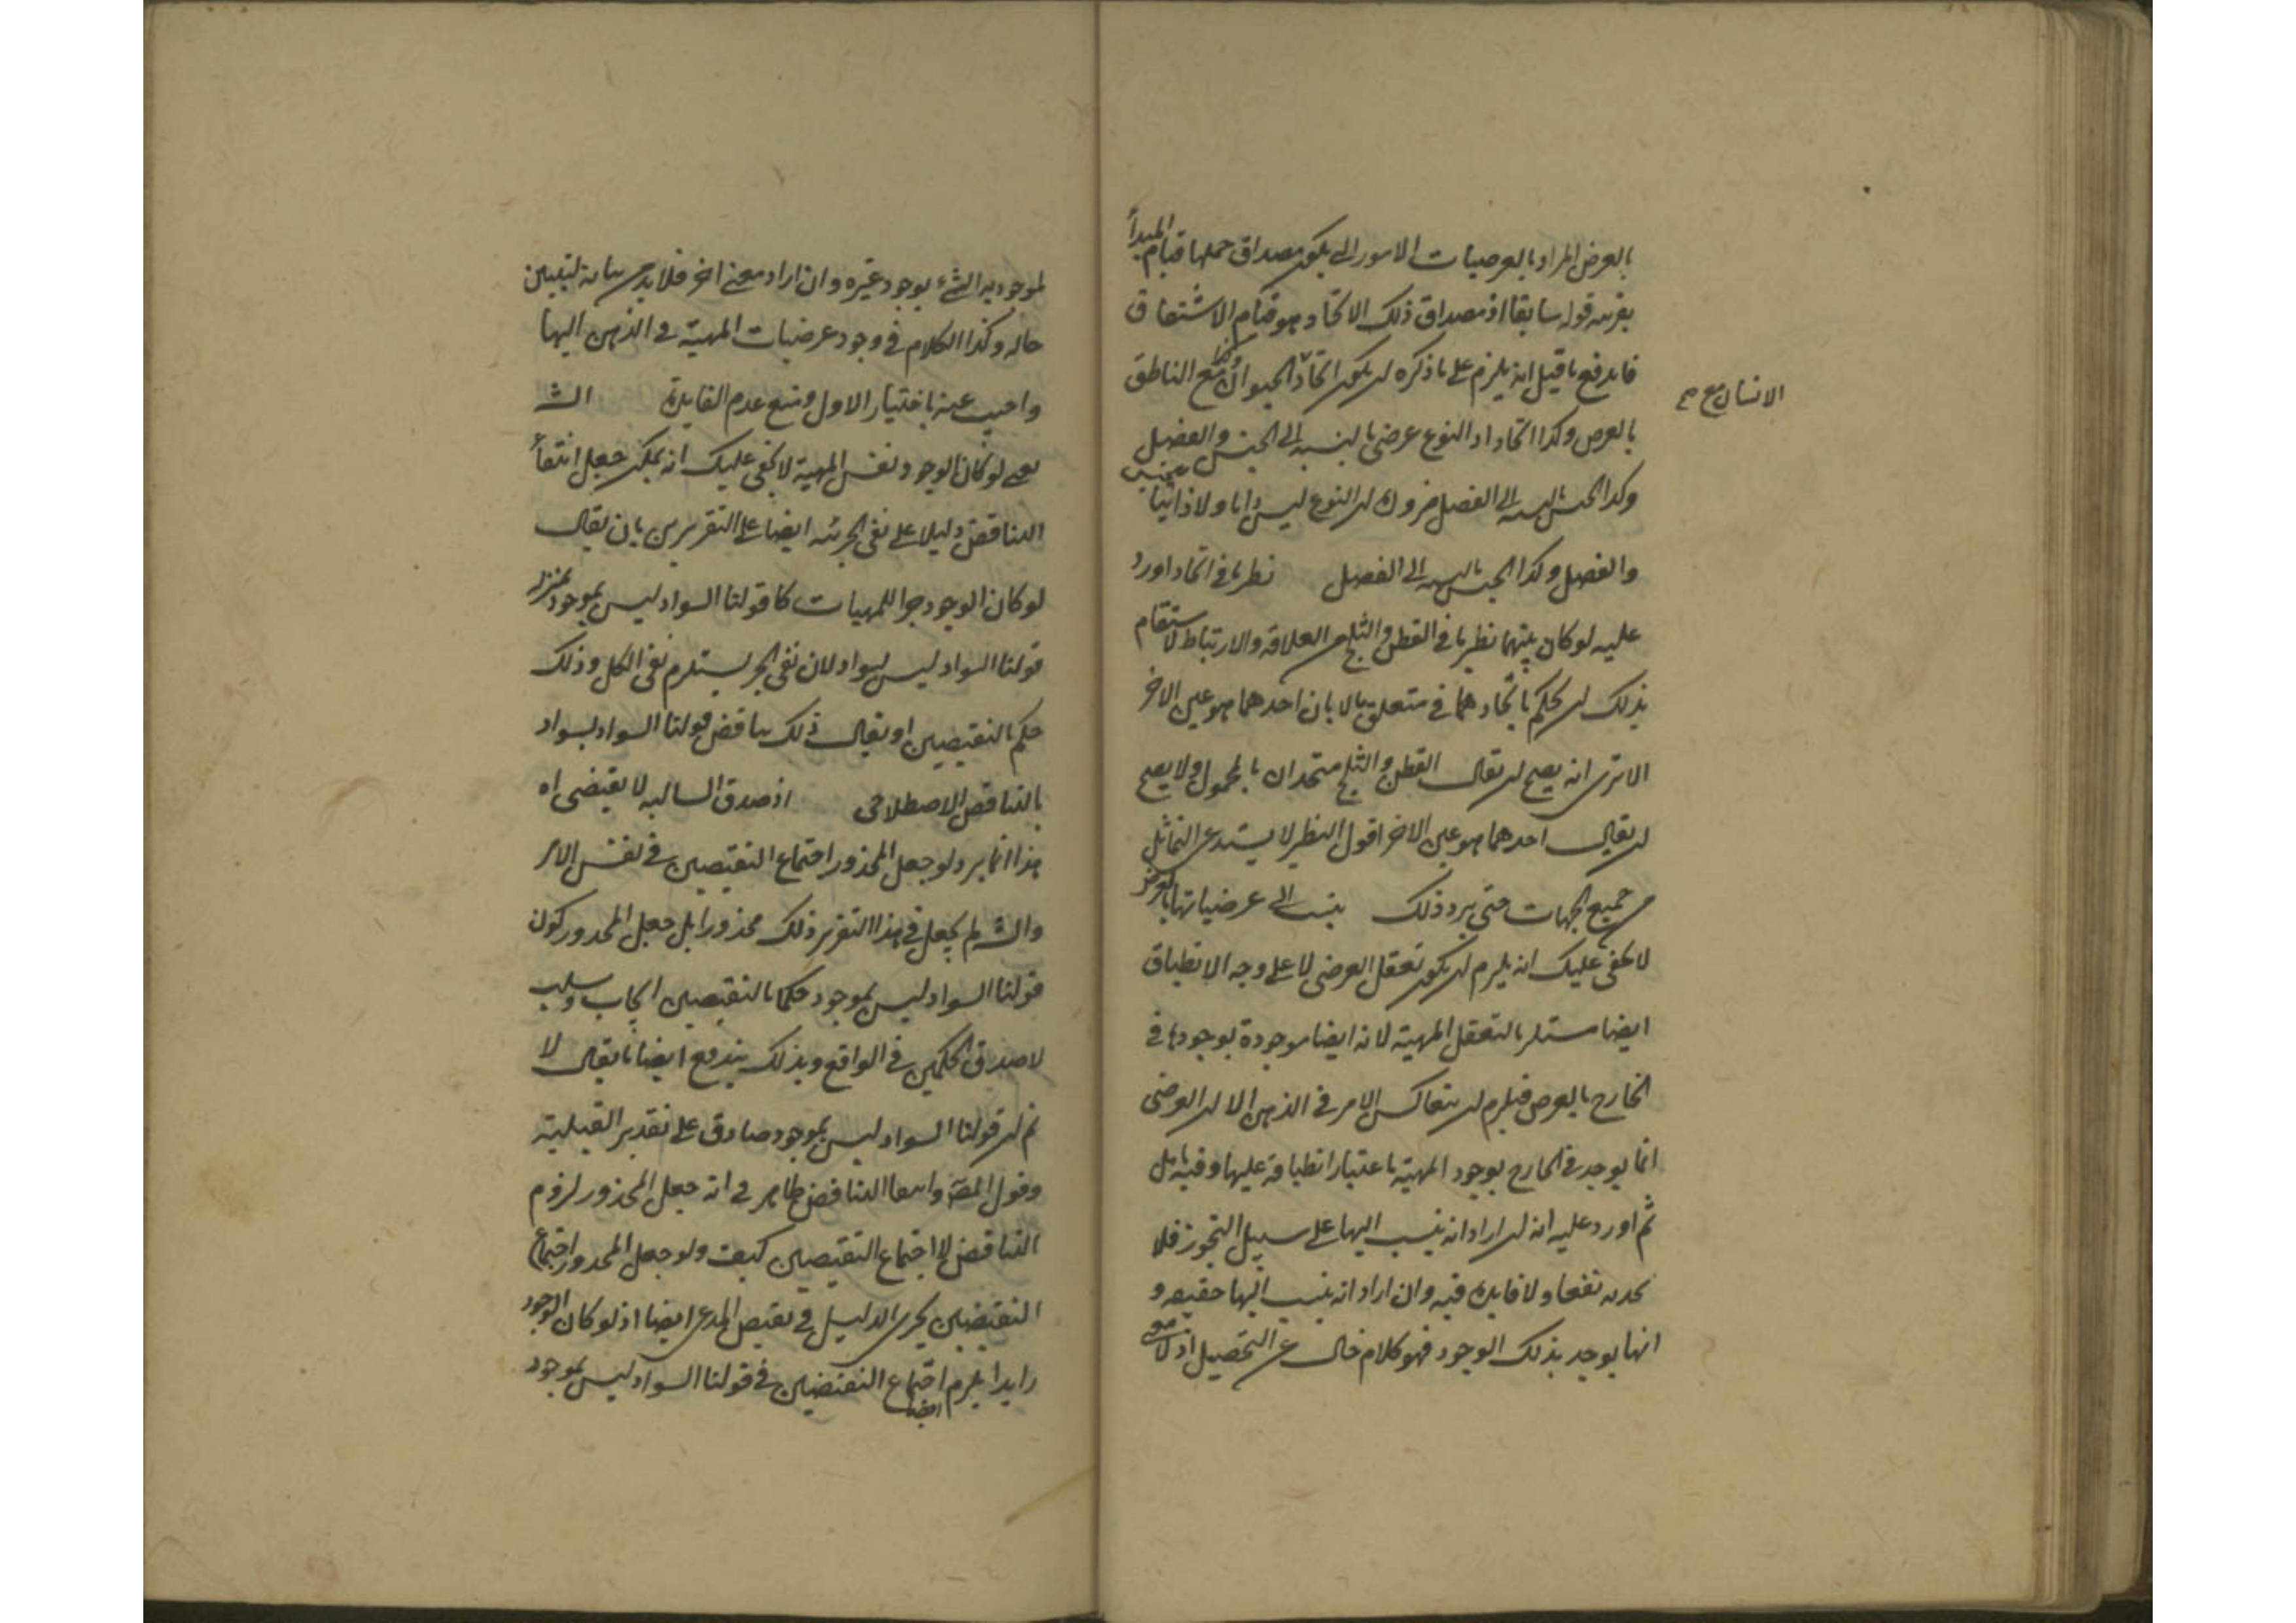 بالعرض المراد بالعرضيات الامور التى يكون مصداق حملها قيام المبدأ
بقرينة قوله سابقا اذ مصداق ذلك الاتحاد هو قيام الاشتقاق
فاندفع ما قيل انه يلزم على ما ذكره ان يكون اتحاد الحيوان مع الناطق
الانسان مع صح
بالعرض وكذا اتحاد النوع عرضى بالنسبة الى الجنس والفصل
وكذا الجنس بالنسبة الى الفصل ضرورة ان النوع ليس ولا ذاتيا
والفصل وكذا الجنس بالنسبة الى الفصل نظرنا فى اتحاد اورد
عليه لو كان بينهما نظير ما فى القطن والثلج من العلاقة والارتباط لاستقام
بذلك ان يحكم باتحادهما فى متعلق ما لا بان احدهما هو عين الاخر
الا ترى انه يصح ان يقال القطن والثلج متحدان بالمحمول ولا يصح
ان يقال احدهما هو عين الاخر اقول النظير لا يستدعى التماثل
من جميع الجهات حتى يرد ذلك ينسب الى عرضياتها بالعرض
لا يخفى عليك انه يلزم ان يكون تعقل العرضى لا على وجه الانطباق
ايضا مستلزما لتعقل المهية لانه ايضا موجودة بوجودها فى
الخارج بالعرض فيلزم ان يتعاكس الامر فى الذهن الا ان العرضى
انما يوجد فى الخارج بوجود المهية باعتبار انطباقه عليها وفيه تامل
ثم اورد عليه انه ان اراد انه ينسب اليها على سبيل التجوز فلا
يجديه نفعا ولا فايدة فيه وان اراد انه ينسب اليها حقيقة و
انها يوجد بذلك الوجود فهو كلام خال عن التحصيل اذ لا معنى
لموجودية الشىء بوجود غيره وان اراد معنى اخر فلا بد من بيانه ليتبين
حاله وكذا الكلام فى وجود عرضيات المهية فى الذهن اليها
واجيب عنه باختيار الاول ومنع عدم الفايدة الش
يعنى لو كان الوجود نفس المهية لا يخفى عليك انه يمكن جعل انتفاء
التناقض دليلا على نفى الجزئية ايضا على التقريرين بان يقال
لو كان الوجود جزا للمهيات كان قولنا السواد ليس بموجود بمنزلة
قولنا السواد ليس بسواد لان نفى الجزء يستلزم نفى الكل وذلك
حكم بالنقيضين او يقال ذلك يناقض قولنا السواد سواد
بالتناقض الاصطلاحى اذ صدق السالبة لا يقتضى اه
هذا انما يرد لو جعل المحذور اجتماع النقيضين فى نفس الامر
والش لم يجعل فى هذا التقرير ذلك محذورا بل جعل المحذور كون
قولنا السواد ليس بموجود حكما بالنقيضين ايجاب وسلب
لا صدق الحكمين فى الواقع وبذلك يندفع ايضا ما يقال لا
ثم ان قولنا السواد ليس بموجود صادق على تقدير
وقول المص وايضا التناقض ظاهر فى انه جعل المحذور لزوم
التناقض لا اجتماع النقيضين كيف ولو جعل المحذور اجتماع
النقيضين يجرى الدليل فى نقيض المدعى ايضا اذ لو كان الوجود
زايدا يلزم اجتماع النقيضين ايضا فى قولنا السواد ليس بموجود